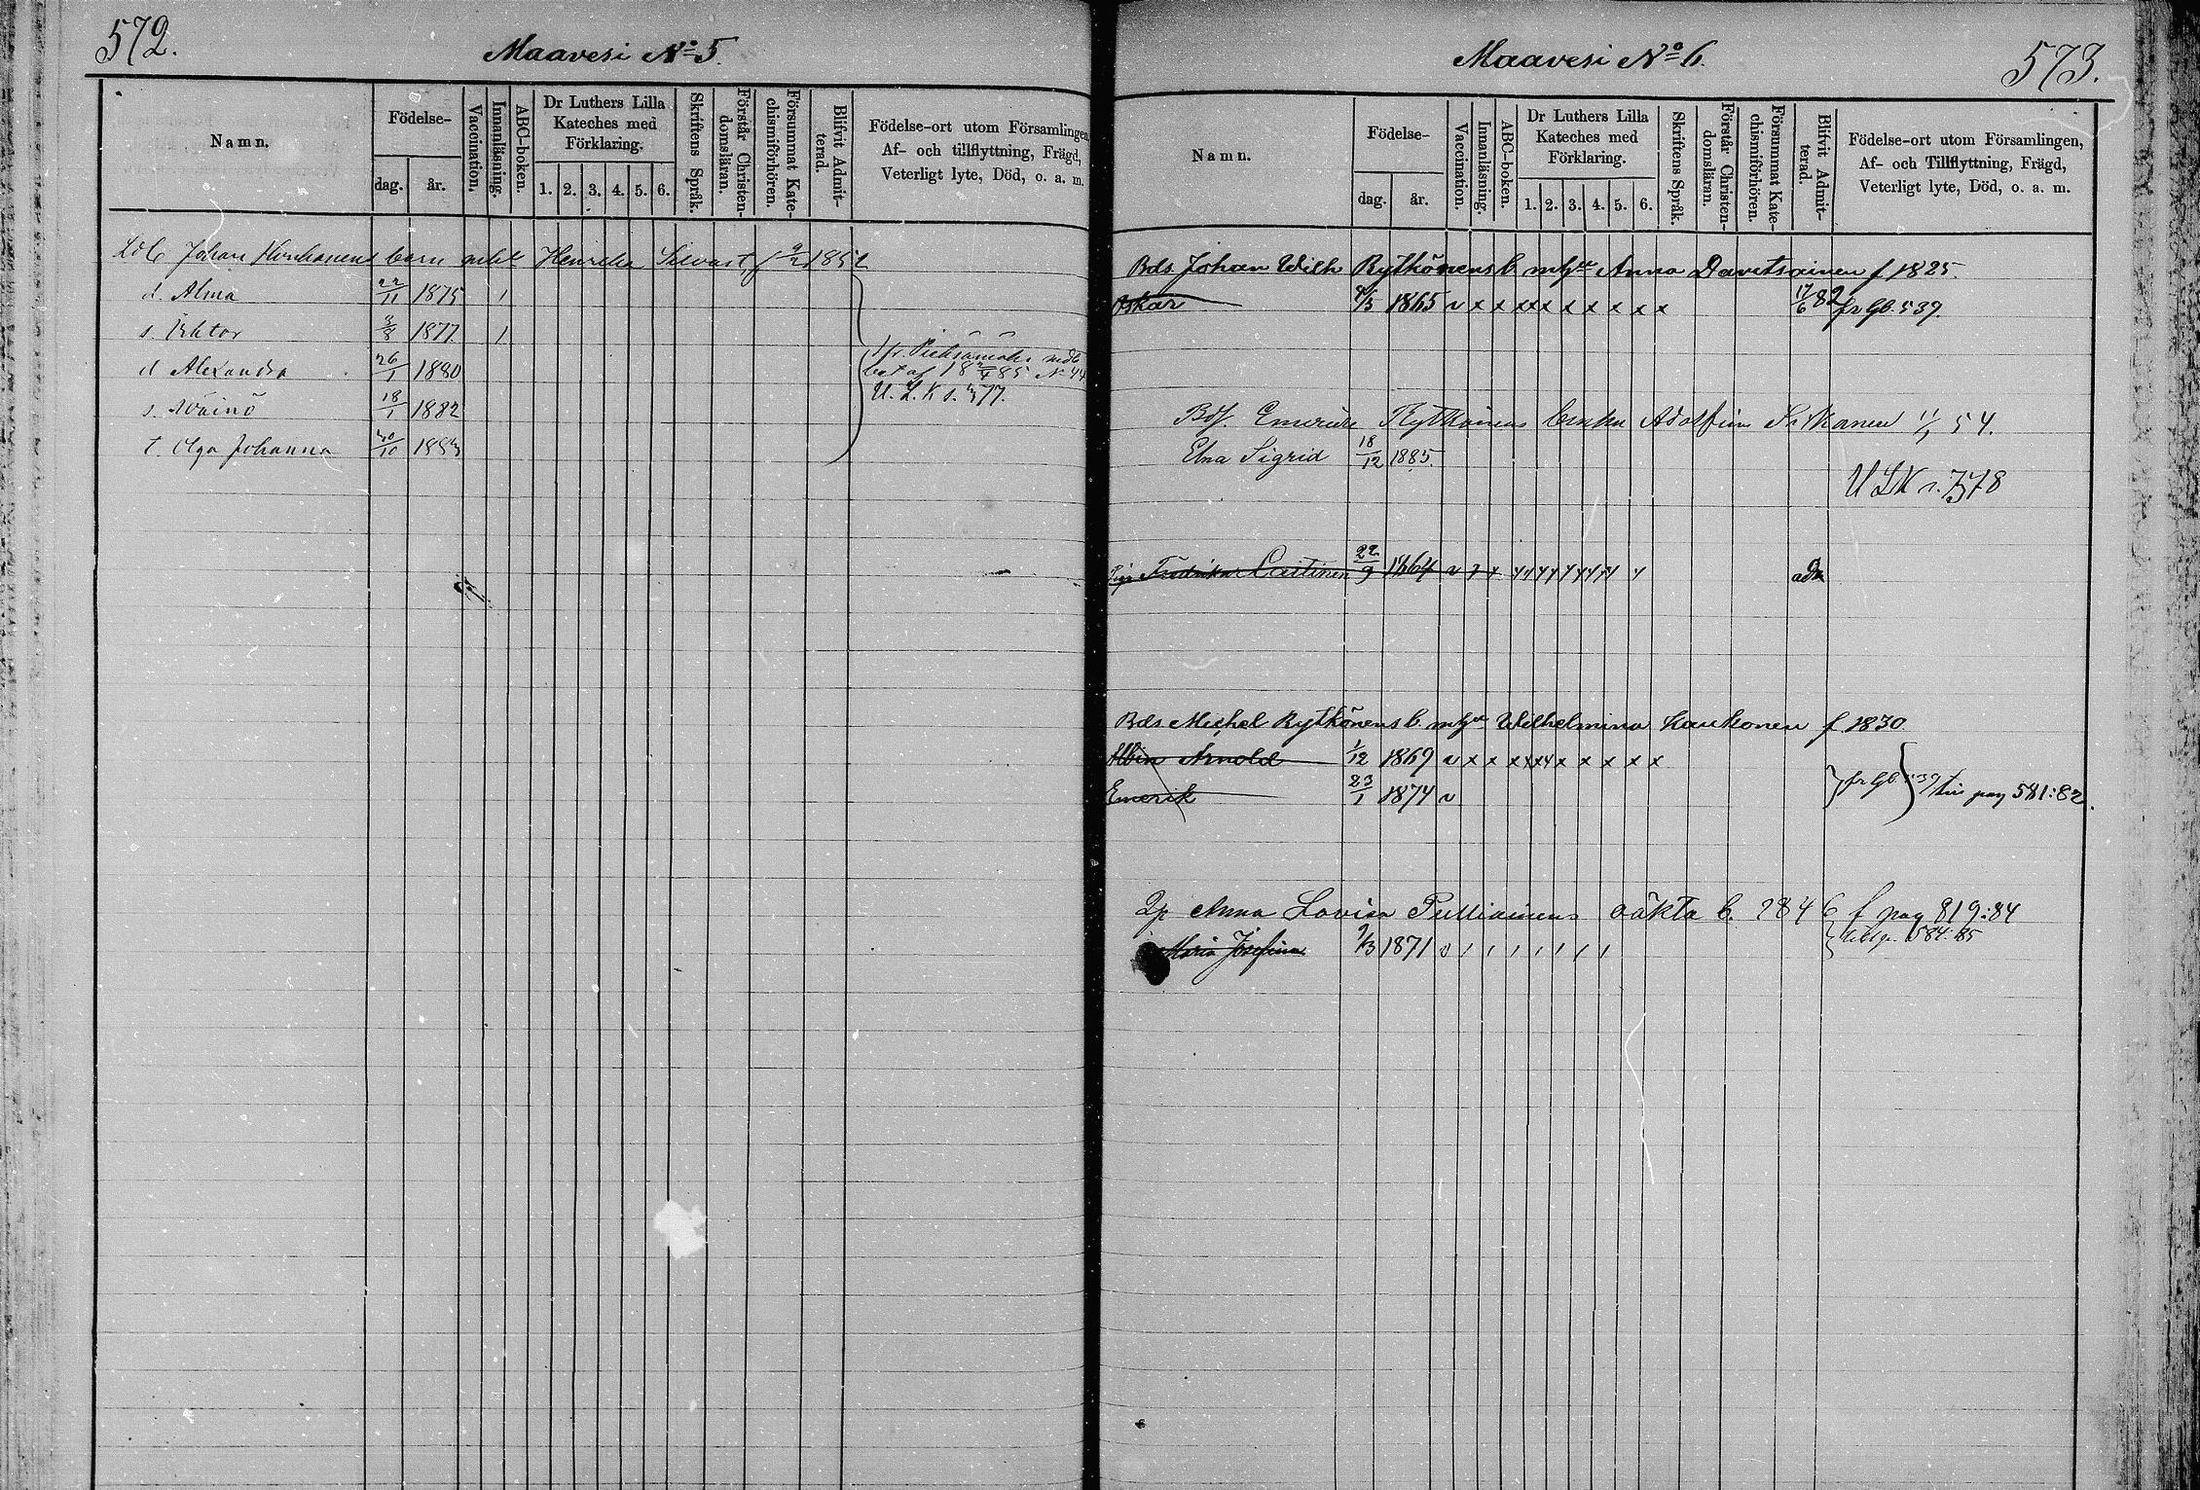 572.
Maavesi No 5.
Namn.
Födelse-
dag.
år.
Vaccination.
Innanläsning.
ABC-boken.
Dr Luthers Lilla
Kateches med
Förklaring.
1. 2. 3. 4. 5. 6.
Skriftens Språk.
Förstår Christen-
domsläran.
Försummat Kate-
chismiförhören.
Blifvit Admit-
terad.
Födelse-ort utom Församlingen,
Af- och tillflyttning, Frägd,
Veterligt lyte, Död, o. a. m.
Johan barn Henrika f 9/2 1852
d. Alma 22/11 1875 1
s. Viktor 1877 1
d Alexandra 26/1 1880
s. Wäinö 18/1 1882
t. Olga Johanna 1883
fr. Pieksämäki
bet af 85 No 44
U. L. K s. 377.
573.
Maavesi No 6.
Namn.
Födelse-
dag.
år.
Vaccination.
Innanläsning.
ABC-boken.
Dr Luthers Lilla
Kateches med
Förklaring.
1. 2. 3. 4. 5. 6.
Skriftens Språk.
Förstår Christen-
domsläran.
Försummat Kate-
chismiförhören.
Blifvit Admit-
terad.
Födelse-ort utom Församlingen,
Af- och Tillflyttning, Frägd,
Veterligt lyte, Död, o. a. m.
Bds Johan Wilh Rytkönens b. m hu Anna Davitsainen f 1825.
Oskar 4/5 1865 v x x x x x x x x x x x 17/6 82 fr Gb. 539.
Rytkönens Adolfina 54.
Elna Sigrid 18/12 1885.
U L K s. 378
Fredrika 22/9 1864 adm
Bds Michel Rytkönens b. m hu Wilhelmina Laukonen f 1830.
Albin Arnold 1/12 1869 v x x x x x x x x x x x
Emerik 23/1 1874 v
fr Gb. 539 pag 581:82.
Anna Lovisa Pulliainens oäkta b. 284 f pag 819:84
Maria Josefina 9/3 1871 584:85